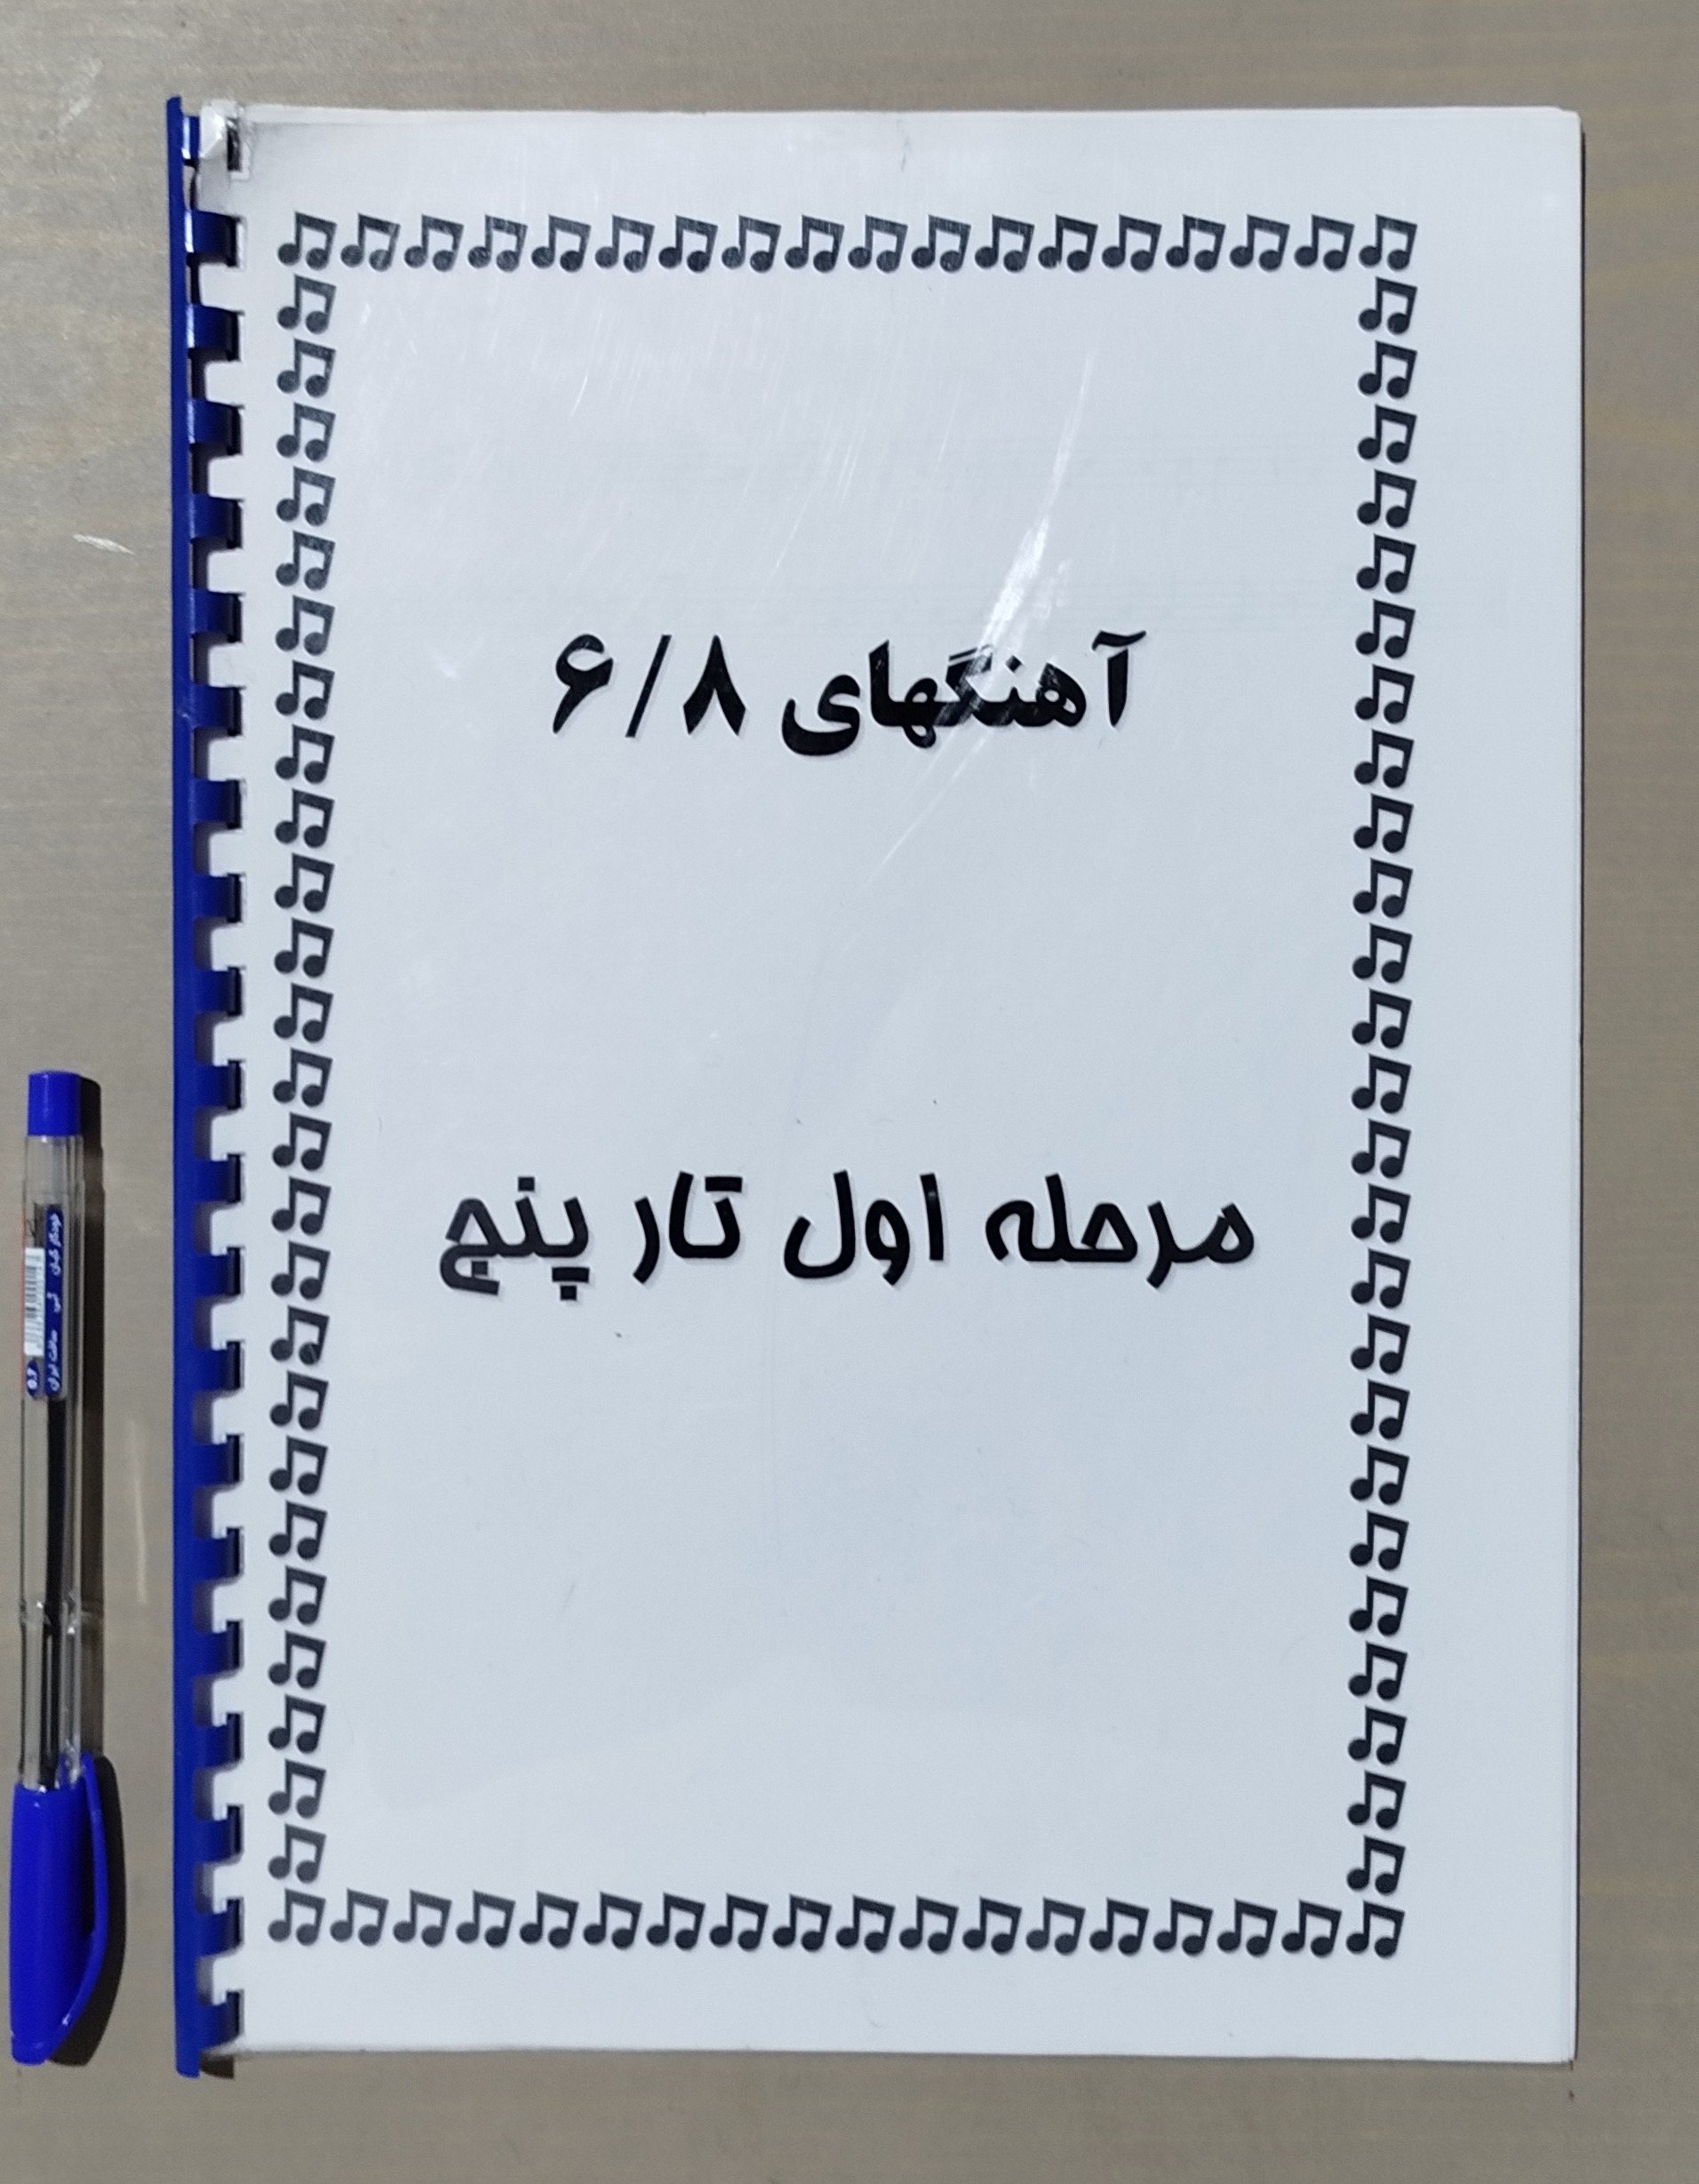 آهنگهای ۶/۸
مرحله اول تار پنج